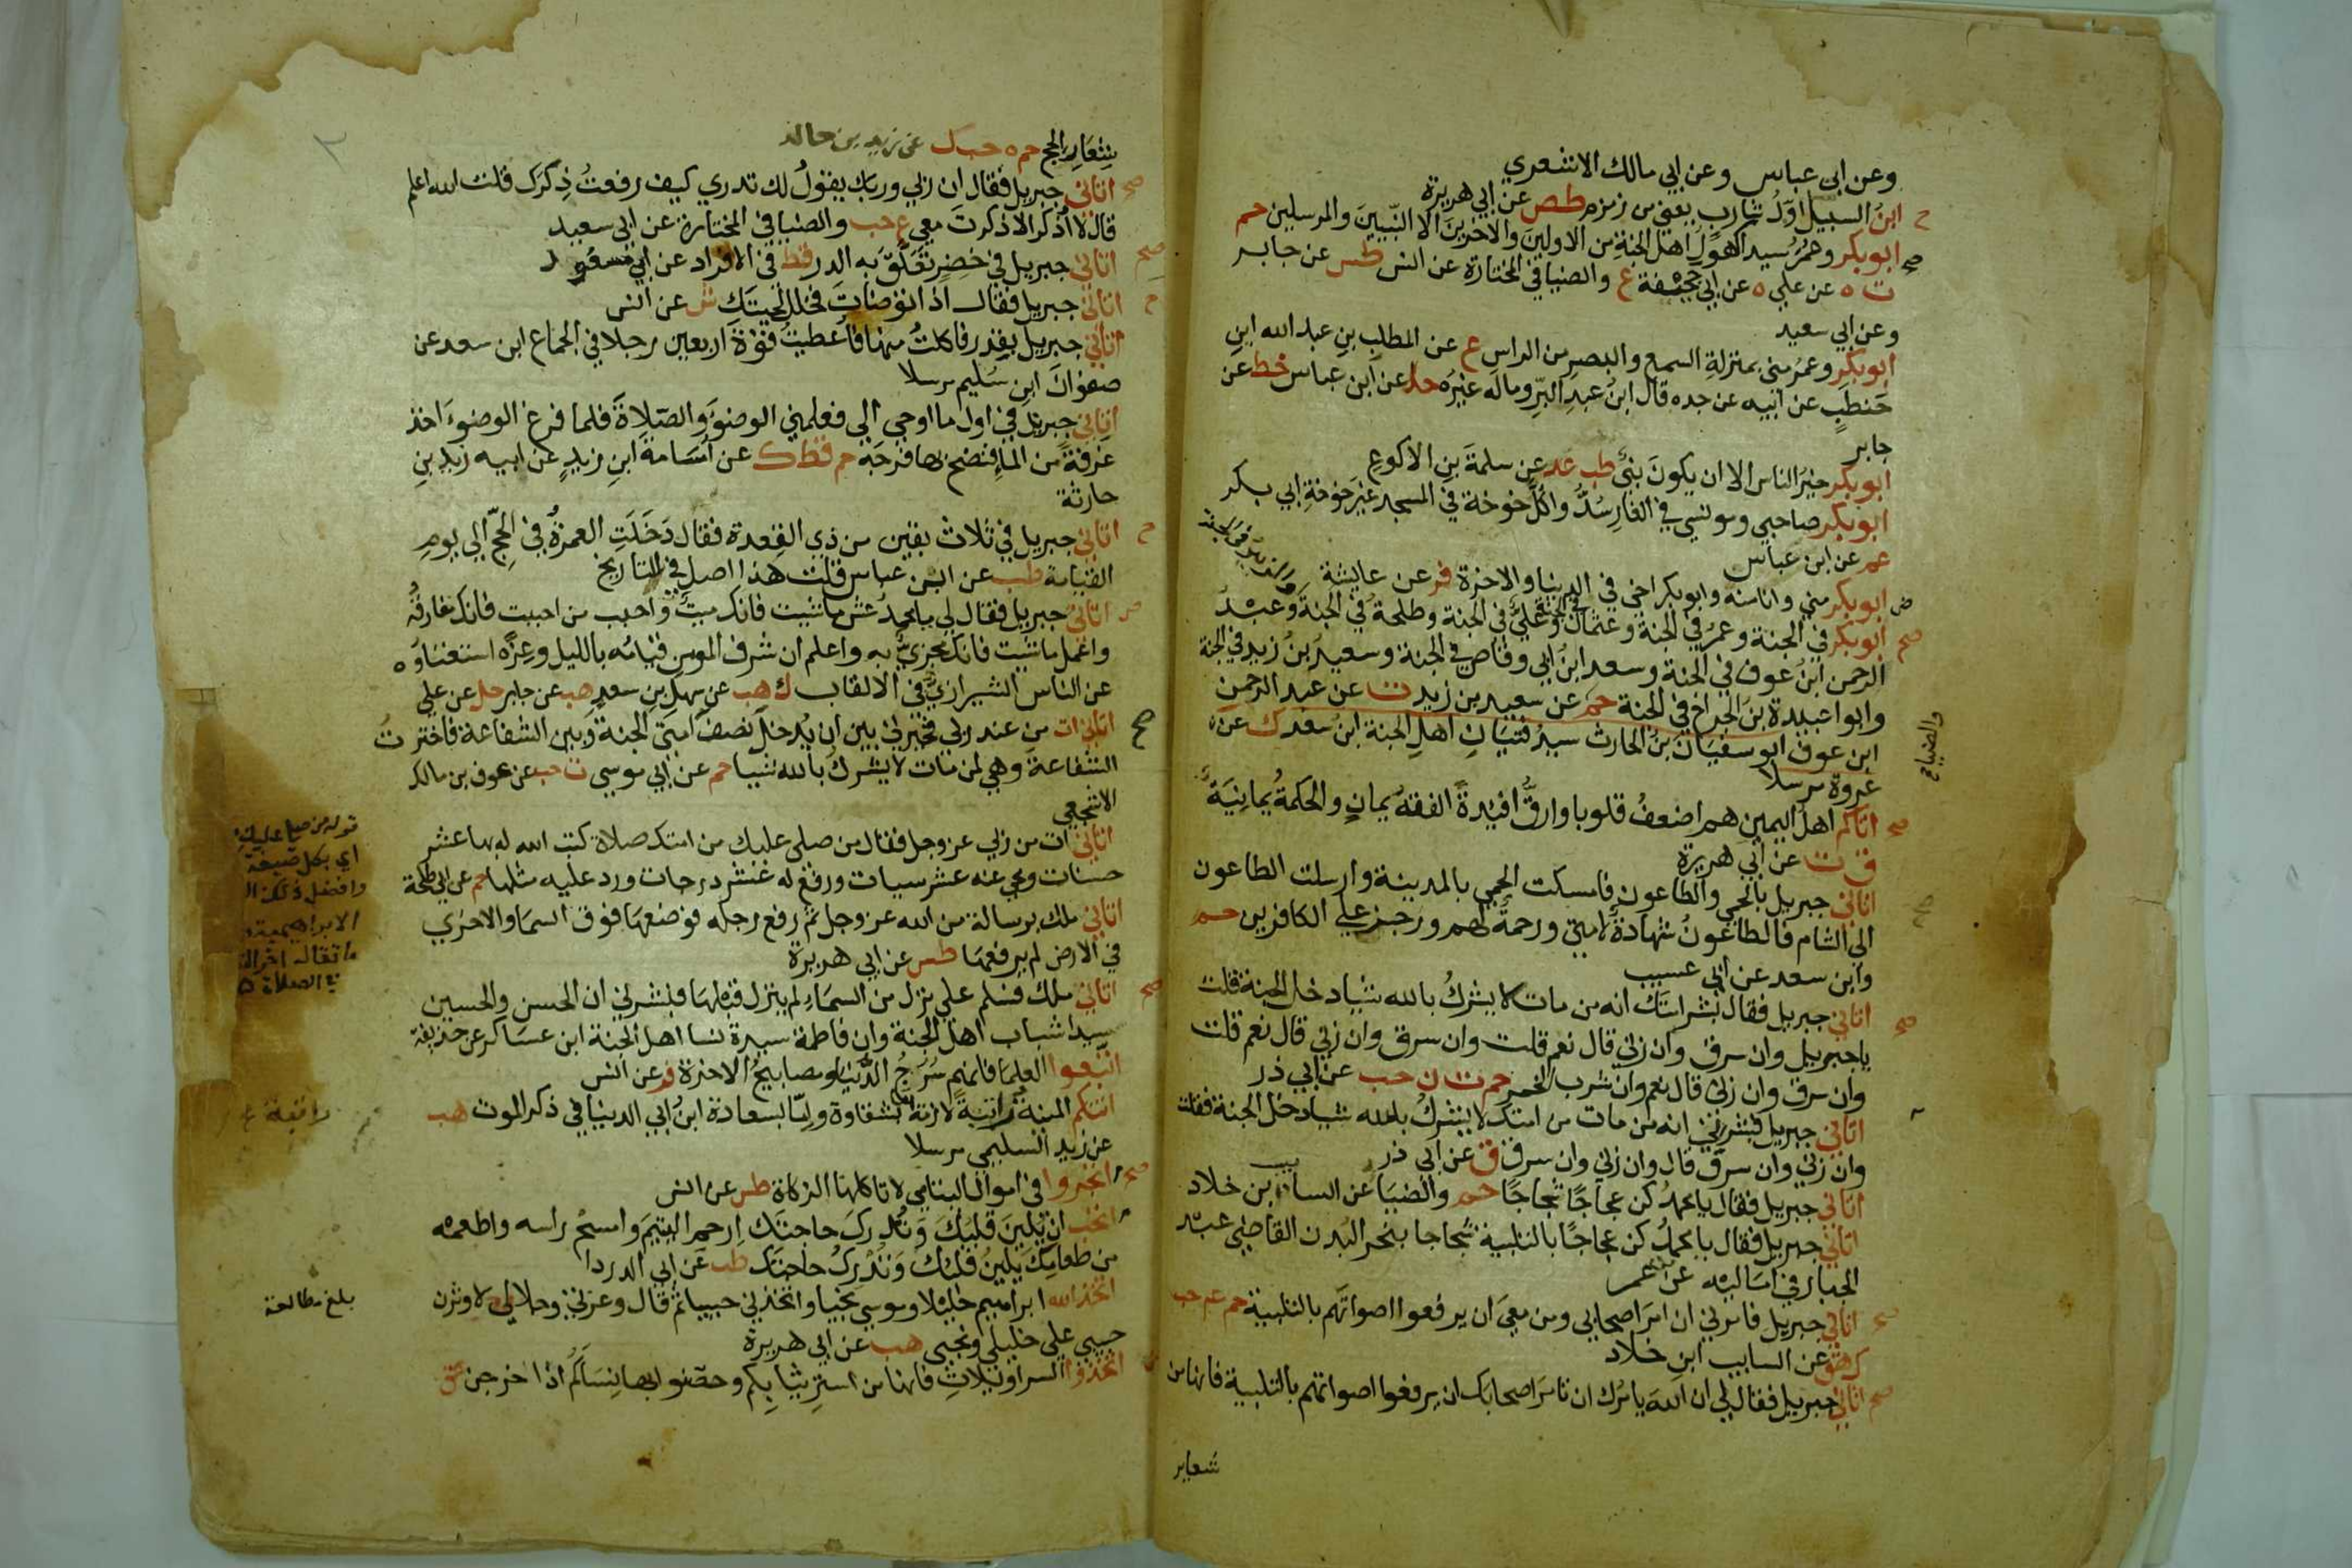 وعن ابى عباس وعن ابي مالك الاشعري
ابن السبيل اوّلُ شارب يعني من زمزم طص عن ابي هريرة
ابوبكر وعمرُ سيدا كهولِ اهل الجنةِ من الاولينَ والاخرينَ الا النّبيينَ والمرسلين حم
ت ه عن علي ه عن ابي جحيفة ع والضيا في المختارة عن انس طس عن جابر
وعن ابي سعيد
ابوبكر وعمرُ مني بمنزلةِ السمع والبصرِ من الراسِ ع عن المطلب بنِ عبد الله ابنِ
حَنطبٍ عن ابيه عن جده قال ابنُ عبدِ البرّ وماله غيرُه حل عن ابن عباس خط عن
جابر
ابوبكر خيرُ الناس الا ان يكونَ نبيٌ طب عد عن سلمةَ بنِ الاكوعِ
ابوبكر صاحبي ومونسي في الغارِ سُدُّوا كُلَّ خوخة في المسجد غيرَ خوخةِ ابي بكر
عم عن ابن عباس
ابوبكر مني وانا منه وابوبكر اخي في الدنيا والاخرة فر عن عايشة
ابوبكر في الجنة وعمرُ في الجنة وعثمانُ في الجنة وعليٌّ في الجنة وطلحةُ في الجنة وعبدُ
الرحمن ابنُ عوف في الجنة وسعد ابنُ ابي وقاص في الجنة وسعيدُ بنُ زيد في الجنة
وابوا عبيدة بنَ الجراحِ في الجنة حم عن سعيد بن زيد ت عن عبد الرحمن
ابن عوف ابو سفيانَ بنُ الحارث سيدُ فتيانِ اهلِ الجنة ابنُ سعد ك عن
عروة مرسلا
اتاكم اهلُ اليمين هم اضعفُ قلوبا وارقُّ افئدةً الفقهُ يمانٍ والحكمةُ يمانِيَةٌ
ق ت عن ابي هريرة
اتاني جبريل بالحمي والطاعون فامسكت الحمي بالمدينة وارسلت الطاعون
الي الشام فالطاعونُ شهادةٌ لامتي ورحمةٌ لهم ورجز علي الكافرين حم
وابن سعد عن ابي عسيب
اتاني جبريل فقال بشر امتك انه من مات لا يشركُ بالله شيا دخل الجنة قلت
يا جبريل وان سرق وان زني قال نعم قلت وان سرق وان زني قال نعم قلت
وان سرق وان زني قال نعم وان شرب الخمر حم ت ن حب عن ابي ذر
اتاني جبريل فبشرني انه من مات من امتك لا يشركُ بالله شيا دخل الجنة فقلت
وان زني وان سرق قال وان زني وان سرق ق عن ابي ذر
اتاني جبريل فقال يا محمدُ كن عجاجًا ثجاجًا حم والضيَا عن السايب بن خلاد
اتاني جبريل فقال يا محمدُ كن عجاجًا بالتلبية ثجاجا بنحر البُدن القاضي عبد
الجبار في اماليه عن عمر
اتاني جبريل فامرني ان امرَ اصحابي ومن معيَ ان يرفعوا اصواتَهم بالتلبية حم عم حب
ك هق عن السايب ابنِ خلاد
اتاني جبريل فقال لي ان اللهَ يامُرك ان تامرَ اصحابك ان يرفعوا اصواتهم بالتلبية فانها من
شعاير
والضياء
شعايرِ الحج حم ه حب ك عن زيد بن خالد
اتاني جبريل فقال ان ربي وربك يقولُ لك تدري كيف رفعتُ ذِكرَك قلت الله اعلم
قال لا اُذكر الا ذكرتَ معي ع حب والضيا في المختارة عن ابي سعيد
اتاني جبريل في خضِرٍ تَعلَّقَ به الدر قط في الافراد عن ابن مسعود
اتاني جبريل فقال اذا توضاتَ فخلل لحيتَك ش عن انس
اتاني جبريل بقِدر فاكلتُ منها فاُعطيتُ قوةَ اربعين رجلا في الجماع ابن سعد عن
صفوانَ ابنِ سُليم مرسلا
اتاني جبريل في اول ما اوحي الي فعلمني الوضوَ والصلاةَ فلما فرغ الوضوءَ اخذ
غرفةً من الماءِ فنضح بها فرجَه حم قط ك عن اُسَامةَ ابنِ زيدٍ عن ابيه زيدِ بنِ
حارثة
اتاني جبريل في ثلاث بقين من ذي القِعدة فقال دَخَلَتِ العمرةُ في الحَجِّ الي يومِ
القيامة طب عن ابن عباس قلت هذا اصل في التاريخ
اتاني جبريل فقال لي يا محمدُ عش ما شيت فانك ميتٌ واحبب من احببت فانك مفارقُه
واعمل ما شيت فانك مجزيٌّ به واعلم ان شرف المومن قيامُه بالليل وعِزّه استغناوُه
عن الناس الشيرازيُّ في الالقاب ك هب عن سهلِ بنِ سعدٍ هب عن جابر حل عن علي
اتاني ات من عند ربي فخيرني بين ان يُدخلَ نصفَ امتي الجنةَ وبين الشفاعة فاخترتُ
الشفاعةَ وهي لمن مات لا يشركُ بالله شيا حم عن ابي موسي ت حب عن عوف بن مالك
الاشجعي
اتاني ات من ربي عز وجل فقال من صلي عليك من امتك صلاة كتب الله له بها عشر
حسنات ومحي عنه عشر سيات ورفع له عشر درجات ورد عليه مثلها حم عن ابي طلحة
اتاني ملك برسالة من الله عز وجل ثم رفع رجله فوضعها فوق السما والاخري
في الارض لم يرفعها طس عن ابي هريرة
اتاني ملك فسلم علي نزل من السماءِ لم ينزل قبلها فبشرني ان الحسن والحسين
سيدا شباب اهل الجنة وان فاطمة سيدة نسا اهل الجنة ابن عساكر عن حذيفة
اتبعوا العلما فانهم سُرُجُ الدُّنيا ومصابيحُ الاخرة فر عن انس
اتتكم المنية راتبةً لازمة اما بشقاوة واِمّا بسعادة ابنُ ابي الدنيا في ذكر الموت هب
عن زيد السليمي مرسلا
اتجروا في اموال اليتامي لا تاكلها الزكاة طس عن انس
اتحب ان يلينَ قلبُكَ وَتُدركَ حاجتَك اِرحمِ اليتيمَ وامسحْ راسه واطعمه
من طعامِكَ يَلِينُ قلبُك وَتُدْرِكُ حاجتَك طب عن ابي الدردا
اتخذ الله ابراهيم خليلا وموسي نجيا واتخذني حبيبا ثم قال وعزتي وجلالي لاوثرن
حبيبي علي خليلي ونجيى هب عن ابي هريرة
اتخذوا السراويلاتِ فانها من استرِ ثيابِكم وحصنوا بها نِسَاكُم اذا خرجن عق
قوله من صلي عليك
اي بكل صيغة
وافضل ذلك
الابراهيمية
الصلاة
بلغ مطالعة